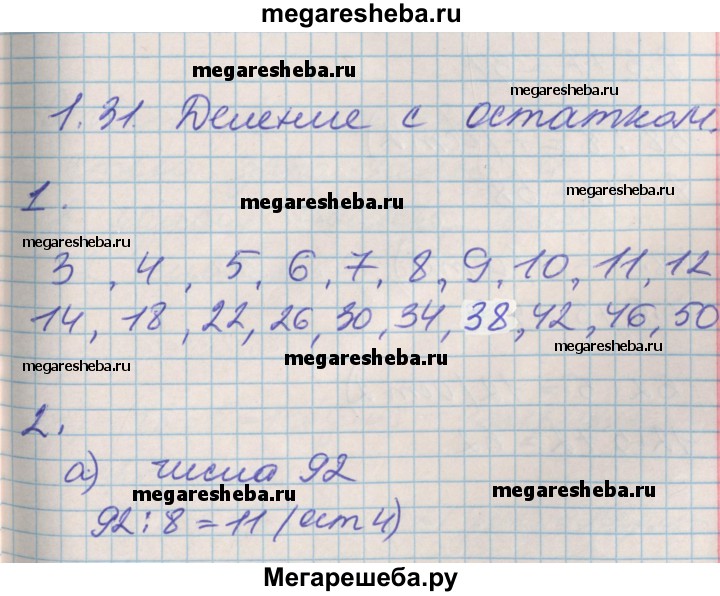 megaresheba.ru
megaresheba.ru
megaresheba.ru
1.31. Деление с остатком.
megaresheba.ru
megaresheba.ru
1.
megaresheba.ru
3, 4, 5, 6, 7, 8, 9, 10, 11, 12
14, 18, 22, 26, 30, 34, 38, 42, 46, 50
megaresheba.ru
megaresheba.ru
megaresheba.ru
2.
а) числа 92
megaresheba.ru
megaresheba.ru
92 : 8 = 11 (ост 4)
Мегарешеба.ру